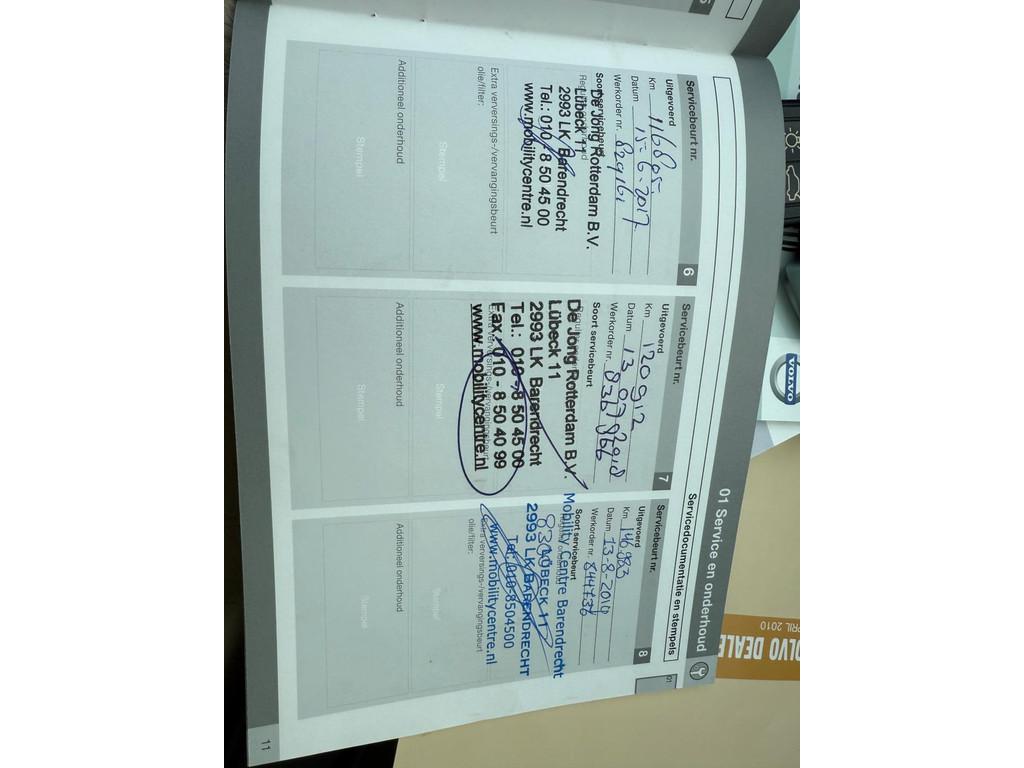 01 Service en onderhoud
Servicedocumentatie en stempels
01
Servicebeurt nr. 6
Uitgevoerd
Km 116805
Datum 15-6-2017
Werkorder nr.
Soort servicebeurt
De Jong Rotterdam B.V.
Lübeck 11
2993 LK Barendrecht
Tel.: 010 - 8 50 45 00
www.mobilitycentre.nl
Extra verversings-/vervangingsbeurt
olie/filter:
Stempel
Additioneel onderhoud
Stempel
Servicebeurt nr. 7
Uitgevoerd
Km 120912
Datum 13
Werkorder nr.
Soort servicebeurt
De Jong Rotterdam B.V.
Lübeck 11
2993 LK Barendrecht
Tel.: 010 - 8 50 45 00
Fax.: 010 - 8 50 40 99
www.mobilitycentre.nl
Stempel
Additioneel onderhoud
Stempel
Servicebeurt nr. 8
Uitgevoerd
Km 146.983
Datum 13-8-2019
Werkorder nr. 844736
Soort servicebeurt
Mobility Centre Barendrecht
LÜBECK 11
2993 LK BARENDRECHT
Tel: 010-8504500
www.mobilitycentre.nl
Extra verversings-/vervangingsbeurt
olie/filter:
Stempel
Additioneel onderhoud
Stempel
11
VOLVO
OLVO DEALE
PRIL 2010